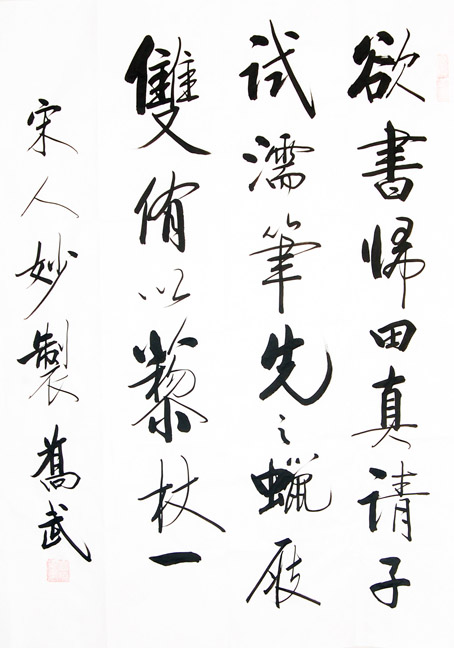 欲書歸田真請子
試濡筆先之蠟屐
雙侑以藜杖一
宋人妙製 喬武